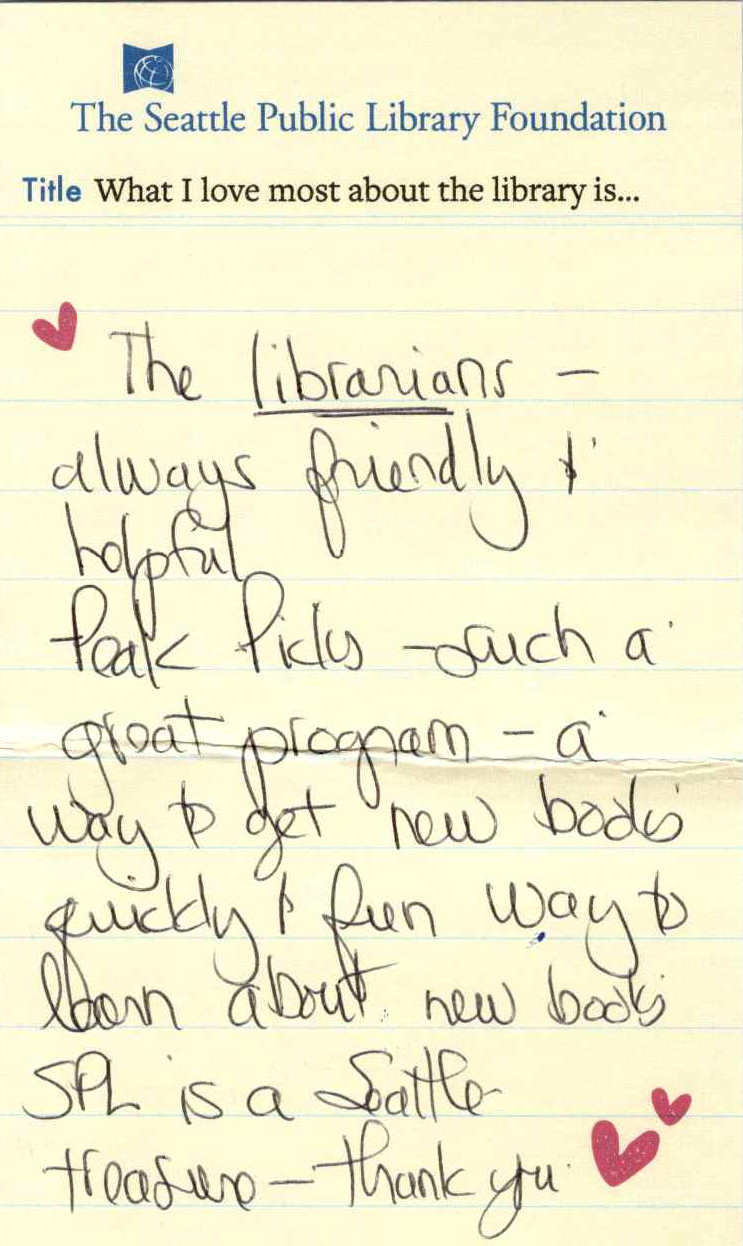 The Seattle Public Library Foundation
Title What I love most about the library is...
The librarians –
always friendly &
helpful
Peak Picks – such a
great program – a
way to get new books
quickly & fun way to
learn about new books
SPL is a Seattle
treasure – thank you